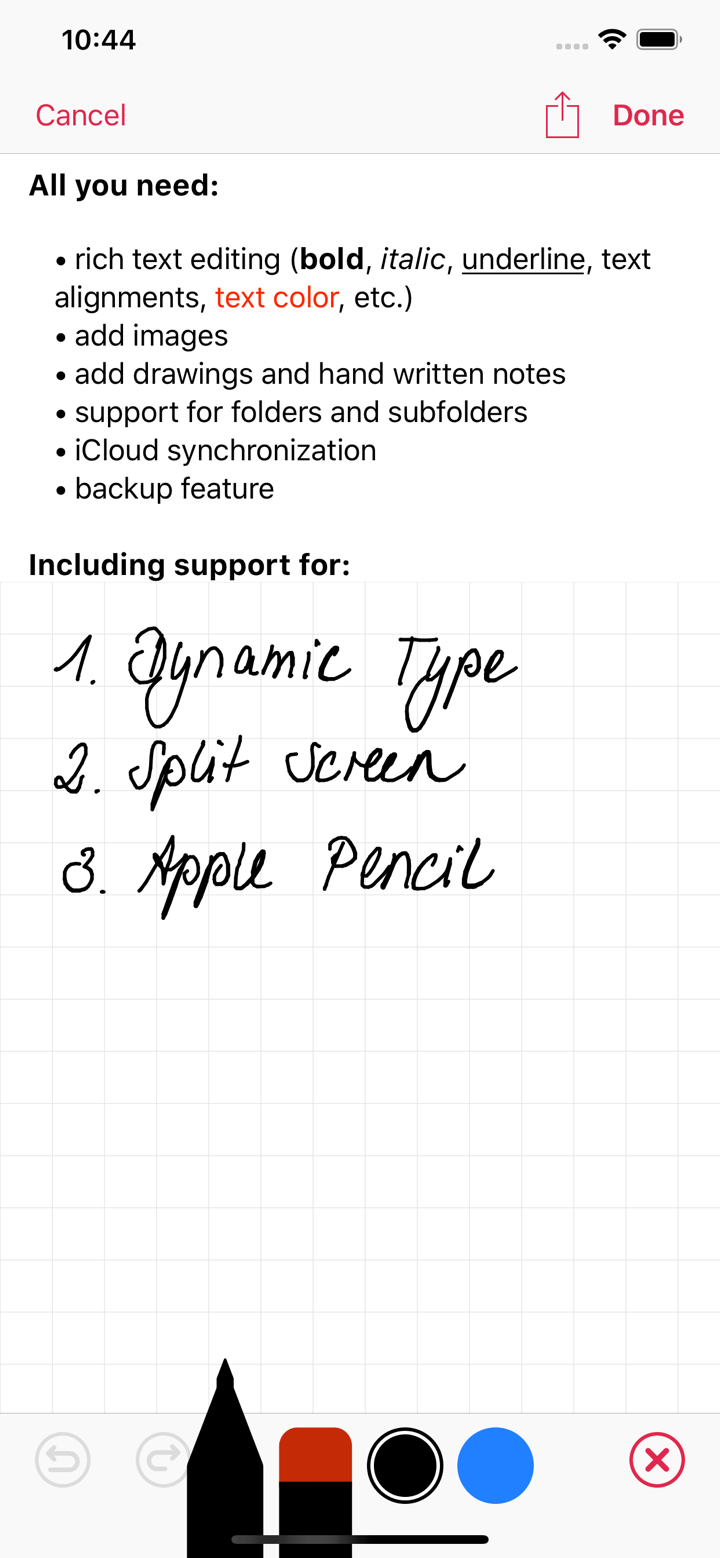 10:44
Cancel
Done
All you need:
• rich text editing (bold, italic, underline, text
alignments, text color, etc.)
• add images
• add drawings and hand written notes
• support for folders and subfolders
• iCloud synchronization
• backup feature
Including support for:
1. Dynamic Type
2. Split Screen
3. Apple Pencil